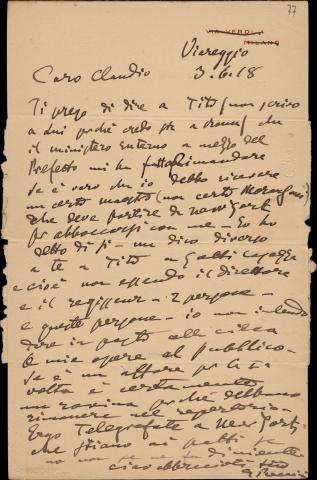 77
VIA VERDI, 4
MILANO
Viareggio
3.6.18
Caro Claudio
Ti prego di dire a Tito (non scrivo
a lui perché credo sia a
il ministero Interno a mezzo del
Prefetto mi ha fatto dimandare
se è vero che io debbo ricevere
un certo maestro (non certo
che deve partire da New York
per abboccarsi con me. Ho
detto di si - un dico diverso
a te a Tito a Gatti
e cioè non essendo il direttore
e il regisseur - 2 persone -
e queste persone - io non intendo
dare in pasto alla cieca
le mie opere al pubblico -
Se non per la 1ª
volta è certamente
una rovina perché debbono
rimanere nel repertorio -
Ergo Telegrafate a New York
che stiano ai patti se
no non se ne fa niente
ciao abbracciati tuo
G Puccini